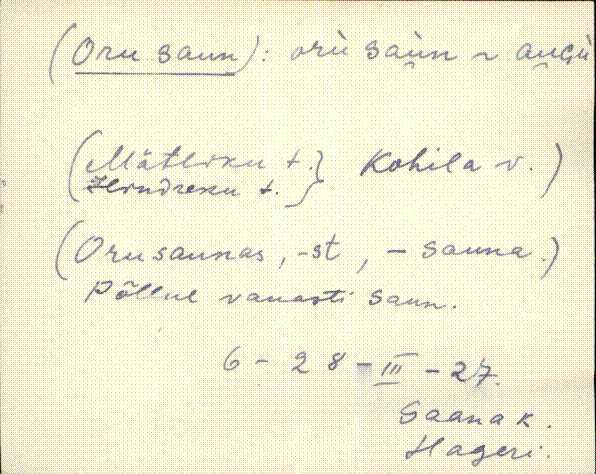 (Oru saun): orù saùn ~ auGù
(Mätliku t.} Kohila v.)
Hindreku t.}
(Orusaunas, -st, - sauna.)
Põllul vanasti saun.
6 - 28 - III - 27.
Saanak.
Hageri.